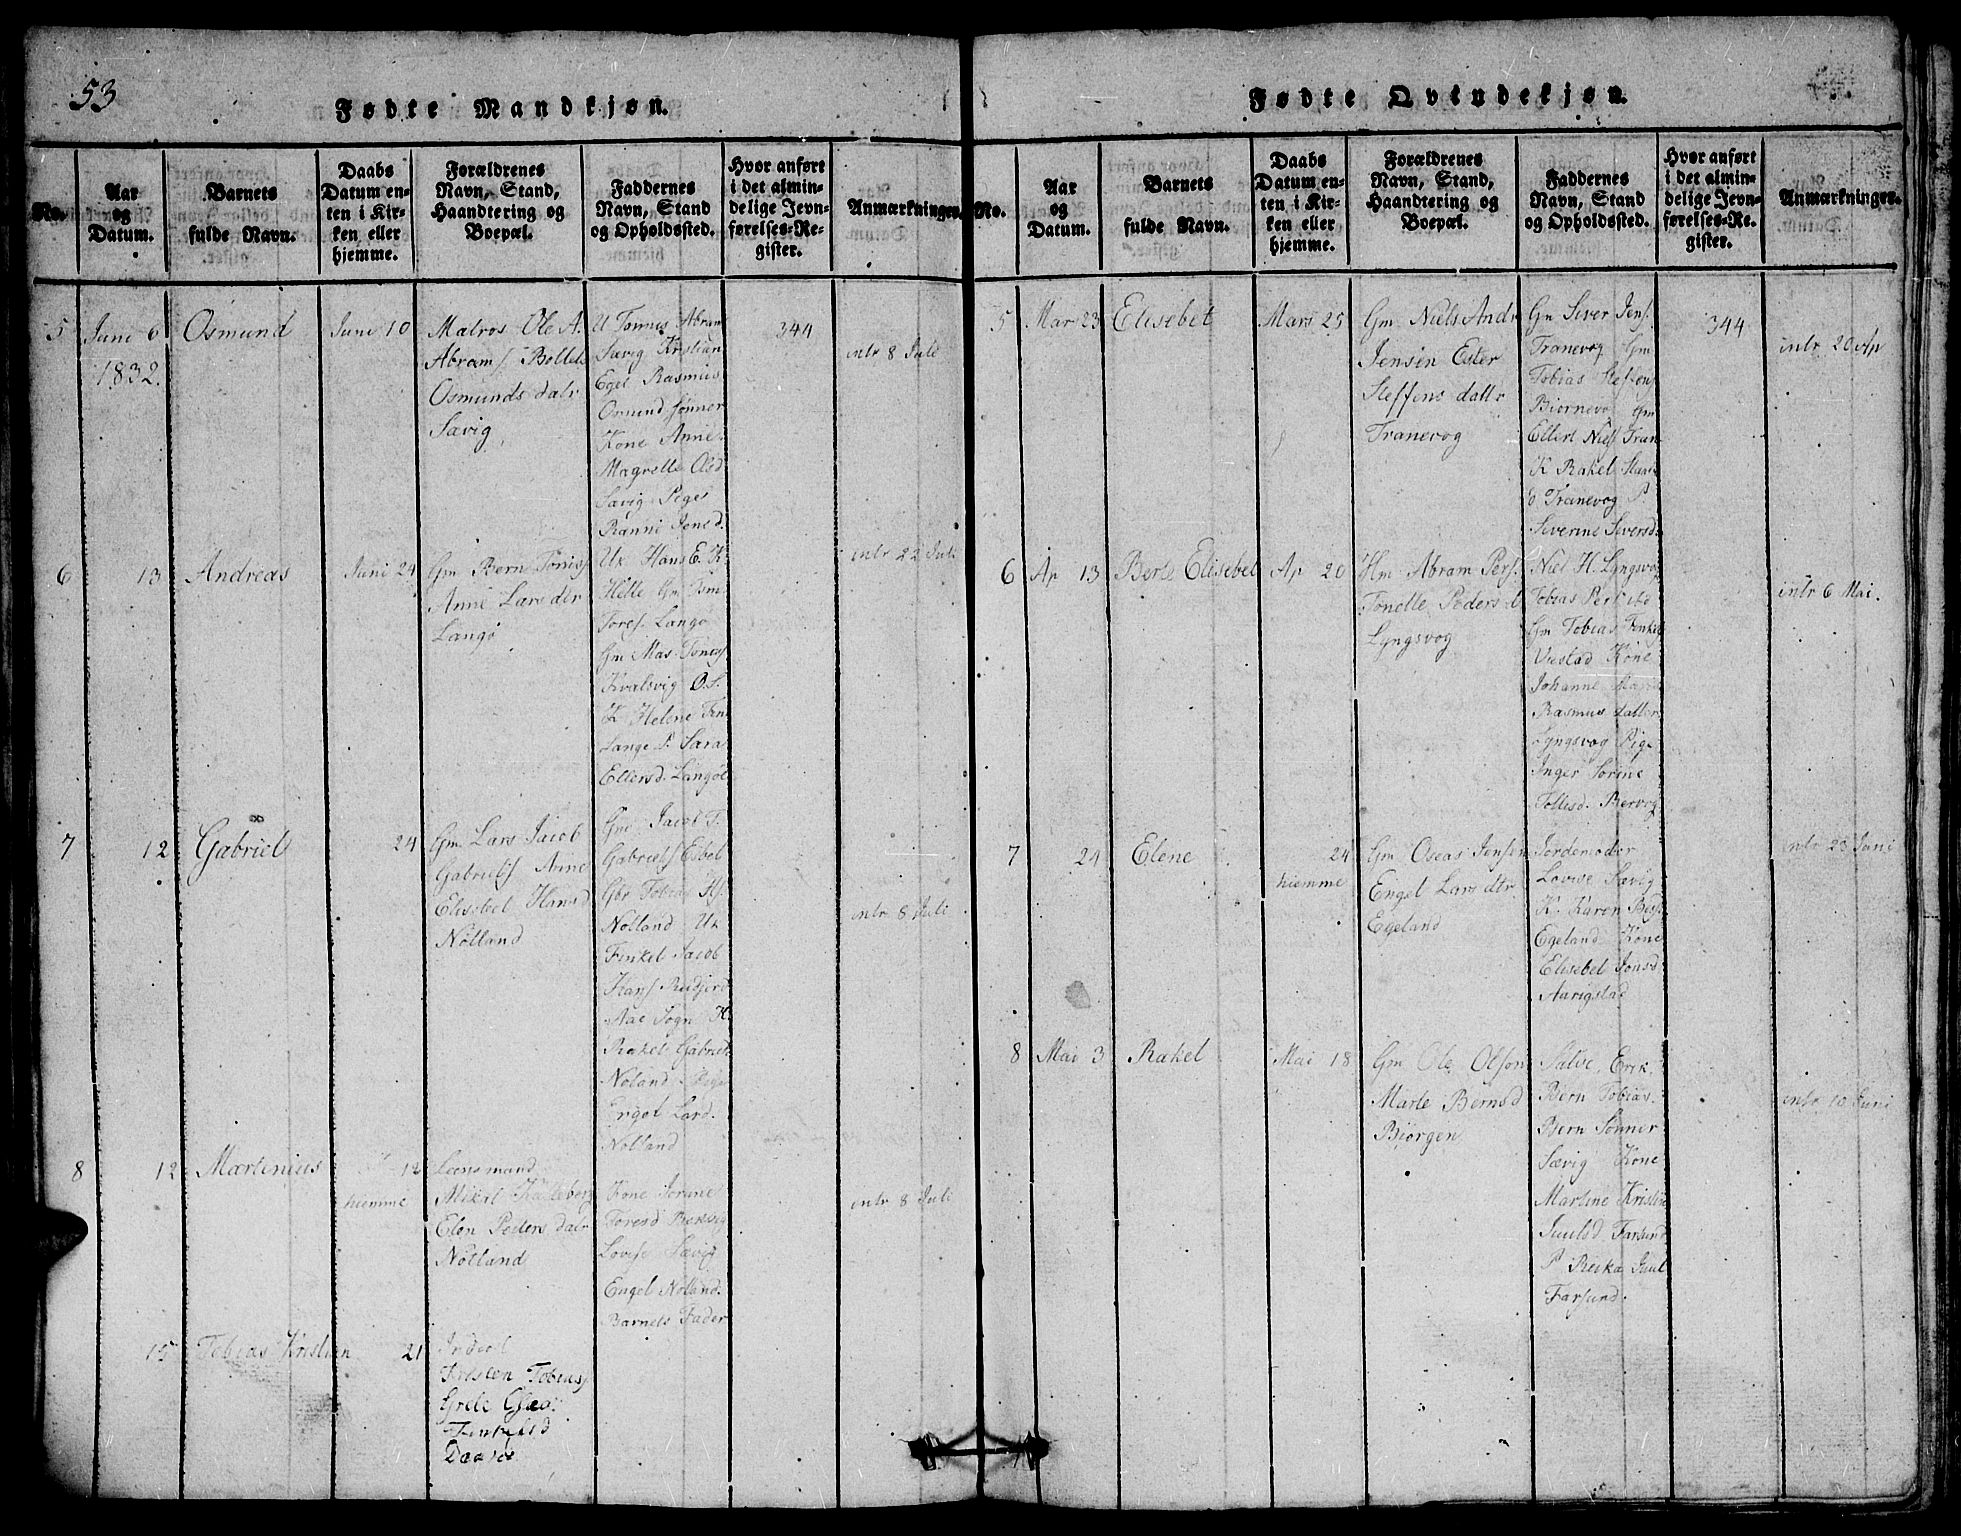 53
Fødte Mandkjøn.
No.
Aar
og
Datum.
Barnets
fulde Navn.
Daabs
Datum en-
ten i Kir-
ken eller
hjemme.
Forældrenes
Navn, Stand,
Haandtering og
Boepæl.
Faddernes
Navn, Stand
og Opholdssted.
Hvor anført
i det almin-
delige Jevn-
førelses-Re-
gister.
Anmærkninger.
5
Juni 6
1832.
Osmund
Juni 10
Matros Ole A.
Abrams Bolles
Osmunds datr
Sævig
U Tønnes Abram
Sævig Kristian
Eget Rasmus
Osmund sønner
Kone Anne
Magrette Olsd
Sævig Piges
Ranni Jensd.
344
intr 8 Juli
6
13
Andreas
Juni 24
Gm Bern Tønis
Anne Lars dtr
Langø
Uk Hans E. K.
Helle Gm Tøm
Tores. Langø
Gm Mas Tønes
Kvalsvig O.S.
K Helene
Lange P. Sara
Ellersd. Langøe
intr 22 Juli
7
12
Gabriel
24
Gm Lars Jacob
Gabriels Anne
Elisebet Hansd
Nøtland
Gm Jacob T.
Gabriels Esbel
Gbr Tobias Hs.
Nøtland Uk
Finkel Jacob
Hans Rudjord
Aae Sogn K.
Rakel Gabriel
Noland Pige
Engel Lard.
Nolland
intr 8 Juli
8
12
Martinius
12
hiemme
Lensmand
Mikel Kalleberg
Elen Peders datr
Nøtland
Kone Jorune
Toresd Berevig
Lovise Sævig
Engel Nøtland.
Barnets Fader
intr 8 Juli
15
Tobias Kristian
21
Inderst
Kristen Tobias
Grete
Finkelsd
Daasøe
Fødte Qvindekjøn.
No.
Aar
og
Datum.
Barnets
fulde Navn.
Daabs
Datum en-
ten i Kir-
ken eller
hjemme.
Forældrenes
Navn, Stand,
Haandtering og
Boepæl.
Faddernes
Navn, Stand
og Opholdssted.
Hvor anført
i det almin-
delige Jevn-
førelses-Re-
gister.
Anmærkninger.
5
Mar 23
Elisebet
Mars 25
Gm Niels Andr
Jensen Ester
Steffens dattr
Tranevog
Gm Siver Jens.
Tranevog Gm
Tobias Steffens
Biørnevo Gm
Ellert Niels Tran
K Rakel
Tranevog P
Severine Seversd.
344
intr 20 Ap
6
Ap 13
Berte Elisebet
Ap 20
Hm Abram Pers.
Tonette Peders d
Lyngsvog
Niel H. Lyngsvog
Tobias Per ibd
Gm Tobias Finkel
Viestad Kone
Johanne
Rasmus datter
Lyngsvog Pige
Inger Sørine
Tollisd. Bervog
intr 6 Mai.
7
24
Elene
24
hiemme
Gm Oseas Jensen
Engel Lars dtr
Egeland
Jordemoder
Lovise Sævig
K. Karen
Egeland Kone
Elisebet Jonsd
Aarigstad
intr 23 Juni
8
Mai 3
Rakel
Mai 18
Gm Ole Olson
Marte Bernsd
Biørgen
Salve, Erik,
Bern Tobias.
Bern Sønner
Sævig Kone
Martine Kristine
Juulsd Farsund
P Reika Juul
Farsund.
intr 10 Juni